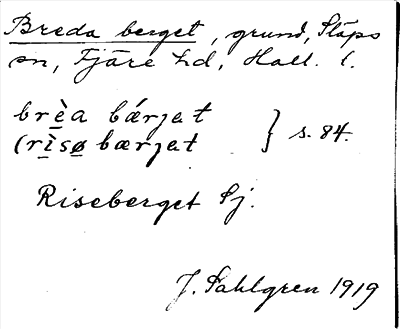 Breda berget, grund, Släps
sn, Fjäre hd, Hall. l.
brèa bǽrjet } s. 84.
(rìsø bærjet
Riseberget Sj.
J. Sahlgren 1919